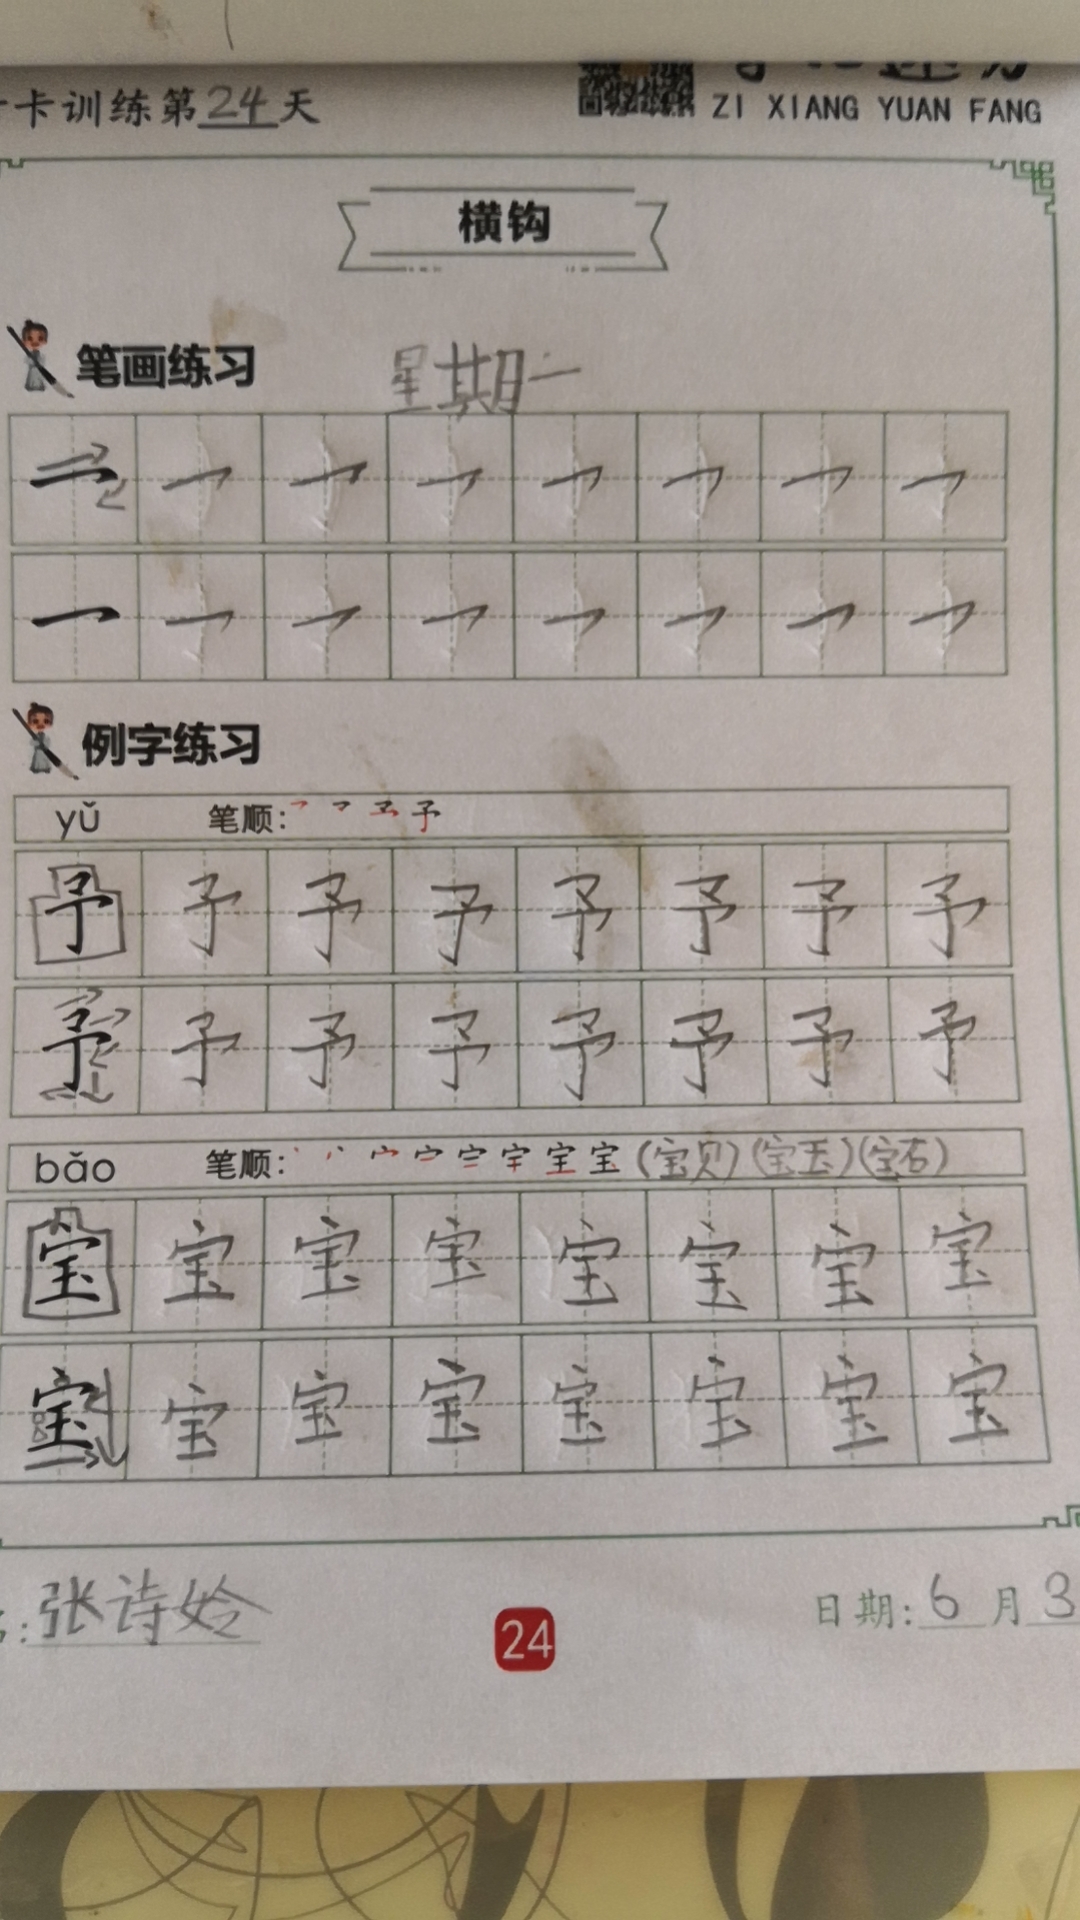 卡训练第24天
ZI XIANG YUAN FANG
横钩
笔画练习
星期一
例字练习
yǔ 笔顺:
予 予 予 予 予 予 予 予
予 予 予 予 予 予 予 予
bǎo 笔顺: (宝贝)(宝玉)(宝石)
宝 宝 宝 宝 宝 宝 宝 宝
宝 宝 宝 宝 宝 宝 宝 宝
张诗姈
24
日期:6月3